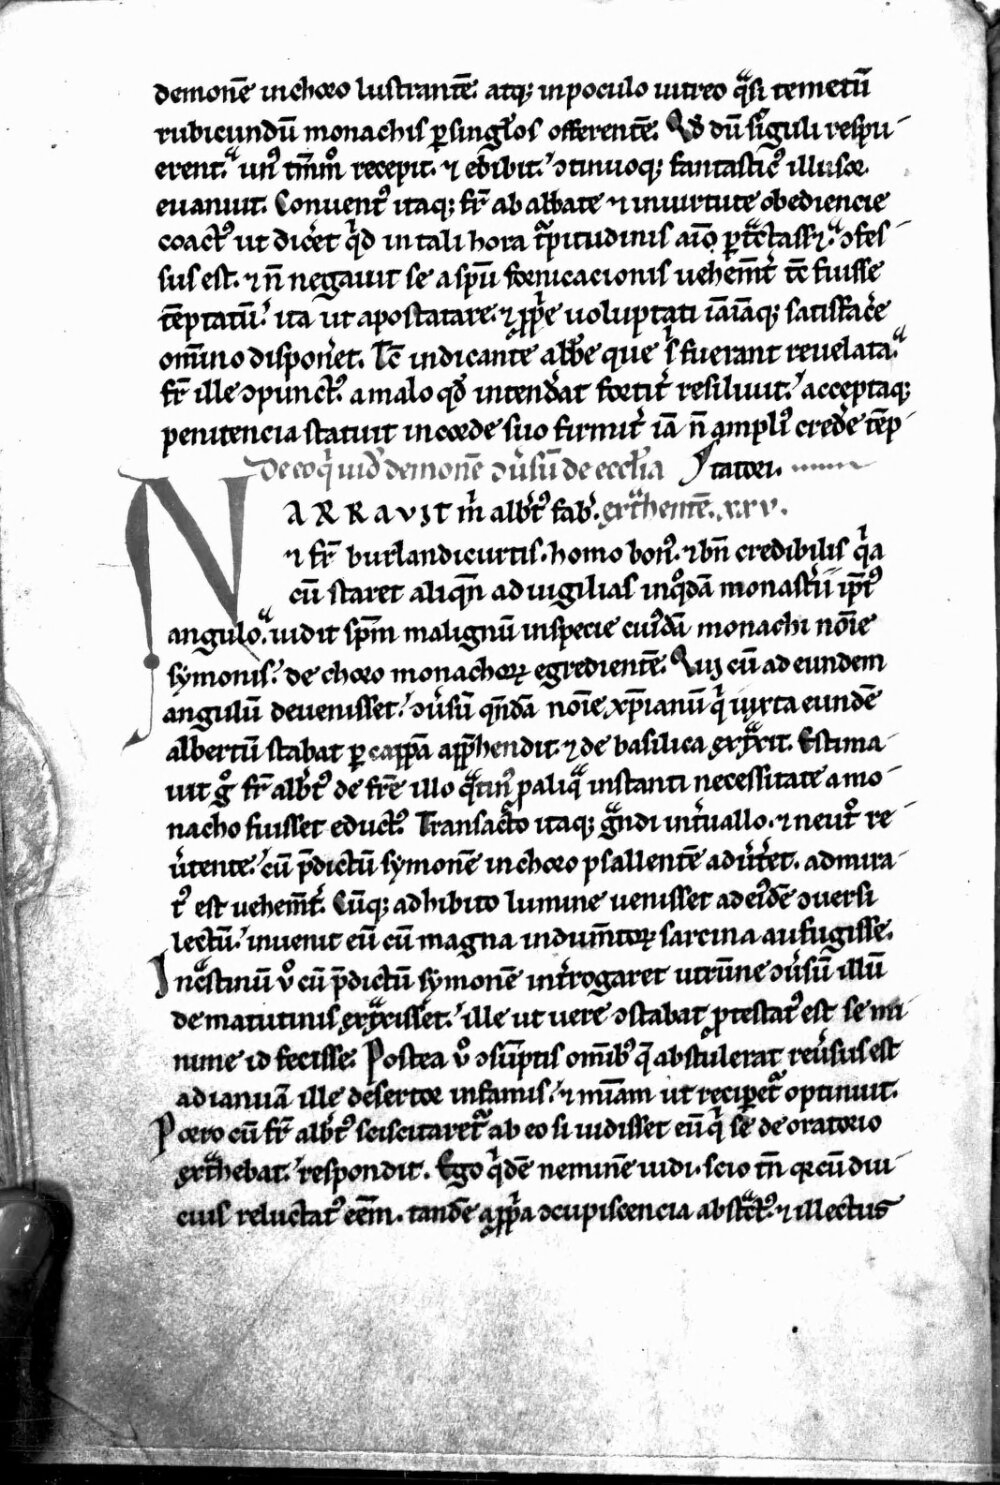 demonē in choro lustrantē. atq; in poculo uitreo qͣsi temetū
rubicundū monachis ꝑ singłos offerentē. Qd̄ dū singuli respu-
erent.ͣ unꝰ tm̄mͦ recepit. ⁊ ebibit.ʼ ↄtinuoq; fantasticꝰ illusor
euanuit. Conuentꝰ itaq; fr̄ ab abbate ⁊ in uirtute obediencie
coactꝰ ut dic̓et qd̄ in tali hora t̓pitudinis aīo ꝑt̓ctass⁊.ͣ ↄfes-
sus est. ⁊ n̄ negauit se a spū fornicacionis uehem̄t̓ tc̄ fuisse
tēptatū.ʼ ita ut apostatare. ⁊ ꝓp̓e uoluptati iāiāq; satisfac̓e
om̄ino dispon̓et. Tc̄ indicante abb̄e que s̓ fuerant reuelata.ͣ
fr̄ ille ↄpunctꝰ. a malo qd̄ intend̓at fortit̓ resiliuit.ʼ acceptaq;
penitencia statuit in corde suo firmit̓ iā n̄ ampliꝰ cred̓e tēp-
De eo qͥ uid̓ demonē ↄu̓sū de eccl̄ia tatori.
NARRAVIT m̄ alb̓tꝰ fab̓. ext̓hentē. .xxv.
⁊ fr̄ burlandicurtis. homo bonꝰ. ⁊ bn̄ credibilis qͥa
cū staret aliqn̄ ad uigilias in qͦdā monast̓ii ip̄iꝰ
angulo.ͣ uidit sp̄m malignū in specie cuiꝰdā monachi noīe
symonis.ʼ de choro monachoꝝ egredientē. Qui cū ad eundem
angulū deuenisset.ʼ ↄu̓sū qn̄dā noīe xp̄ianū qͥ iuxta eundē
albertū stabat ꝑ cappā app̄hendit. ⁊ de basilica ext̓xit. Estima-
uit gͦ fr̄ alb̓tꝰ de fr̄e illo qͣtinꝰ ꝓ aliqͣ instanti necessitate a mo-
nacho fuisset eductꝰ. Transacto itaq; gͣndi int̓uallo. ⁊ neut̓o re-
u̓tente.ʼ cū p̄dictū symonē in choro psallentē adu̓t̓et. admira-
tꝰ est uehem̄t̓. Cūq; adhibito lumine uenisset ad eiꝰdē ↄuersi
lectū.ʼ inuenit eū cū magna indum̄toꝝ sarcina aufugisse.
In cͣstinū uͦ cū p̄dictū symonē int̓rogaret utrūne ↄu̓sū illū
de matutinis ext̓xisset.ʼ ille ut uere ↄstabat ꝓtestatꝰ est se mi-
nime id fecisse. Postea uͦ ↄsūptis om̄ibꝰ q̄ abstulerat reu̓sus est
ad ianuā ille desertor infamis.ʼ ⁊ mīam ut recipet̓ optinuit.
Porro cū fr̄ alb̓tꝰ sciscitaret̓ ab eo si uidisset eū qͥ se de oratorio
ext̓hebat.ʼ respondit. Ego qͥdē neminē uidi. scio tn̄ qr cū diu-
cius reluctatꝰ eēm. tandē a ꝓp̓a ↄcupiscencia abst̓ctꝰ. ⁊ illectus